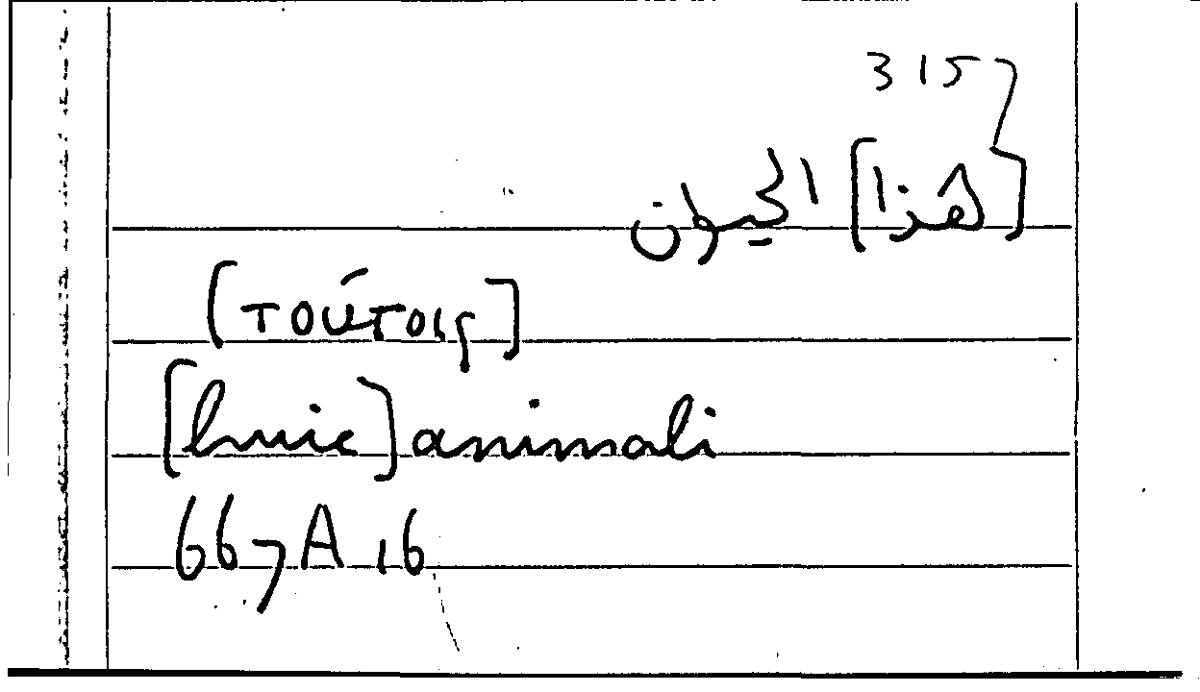 3157
[هذا] الحيوان
[τούτοις]
[huic] animali
667 A 16